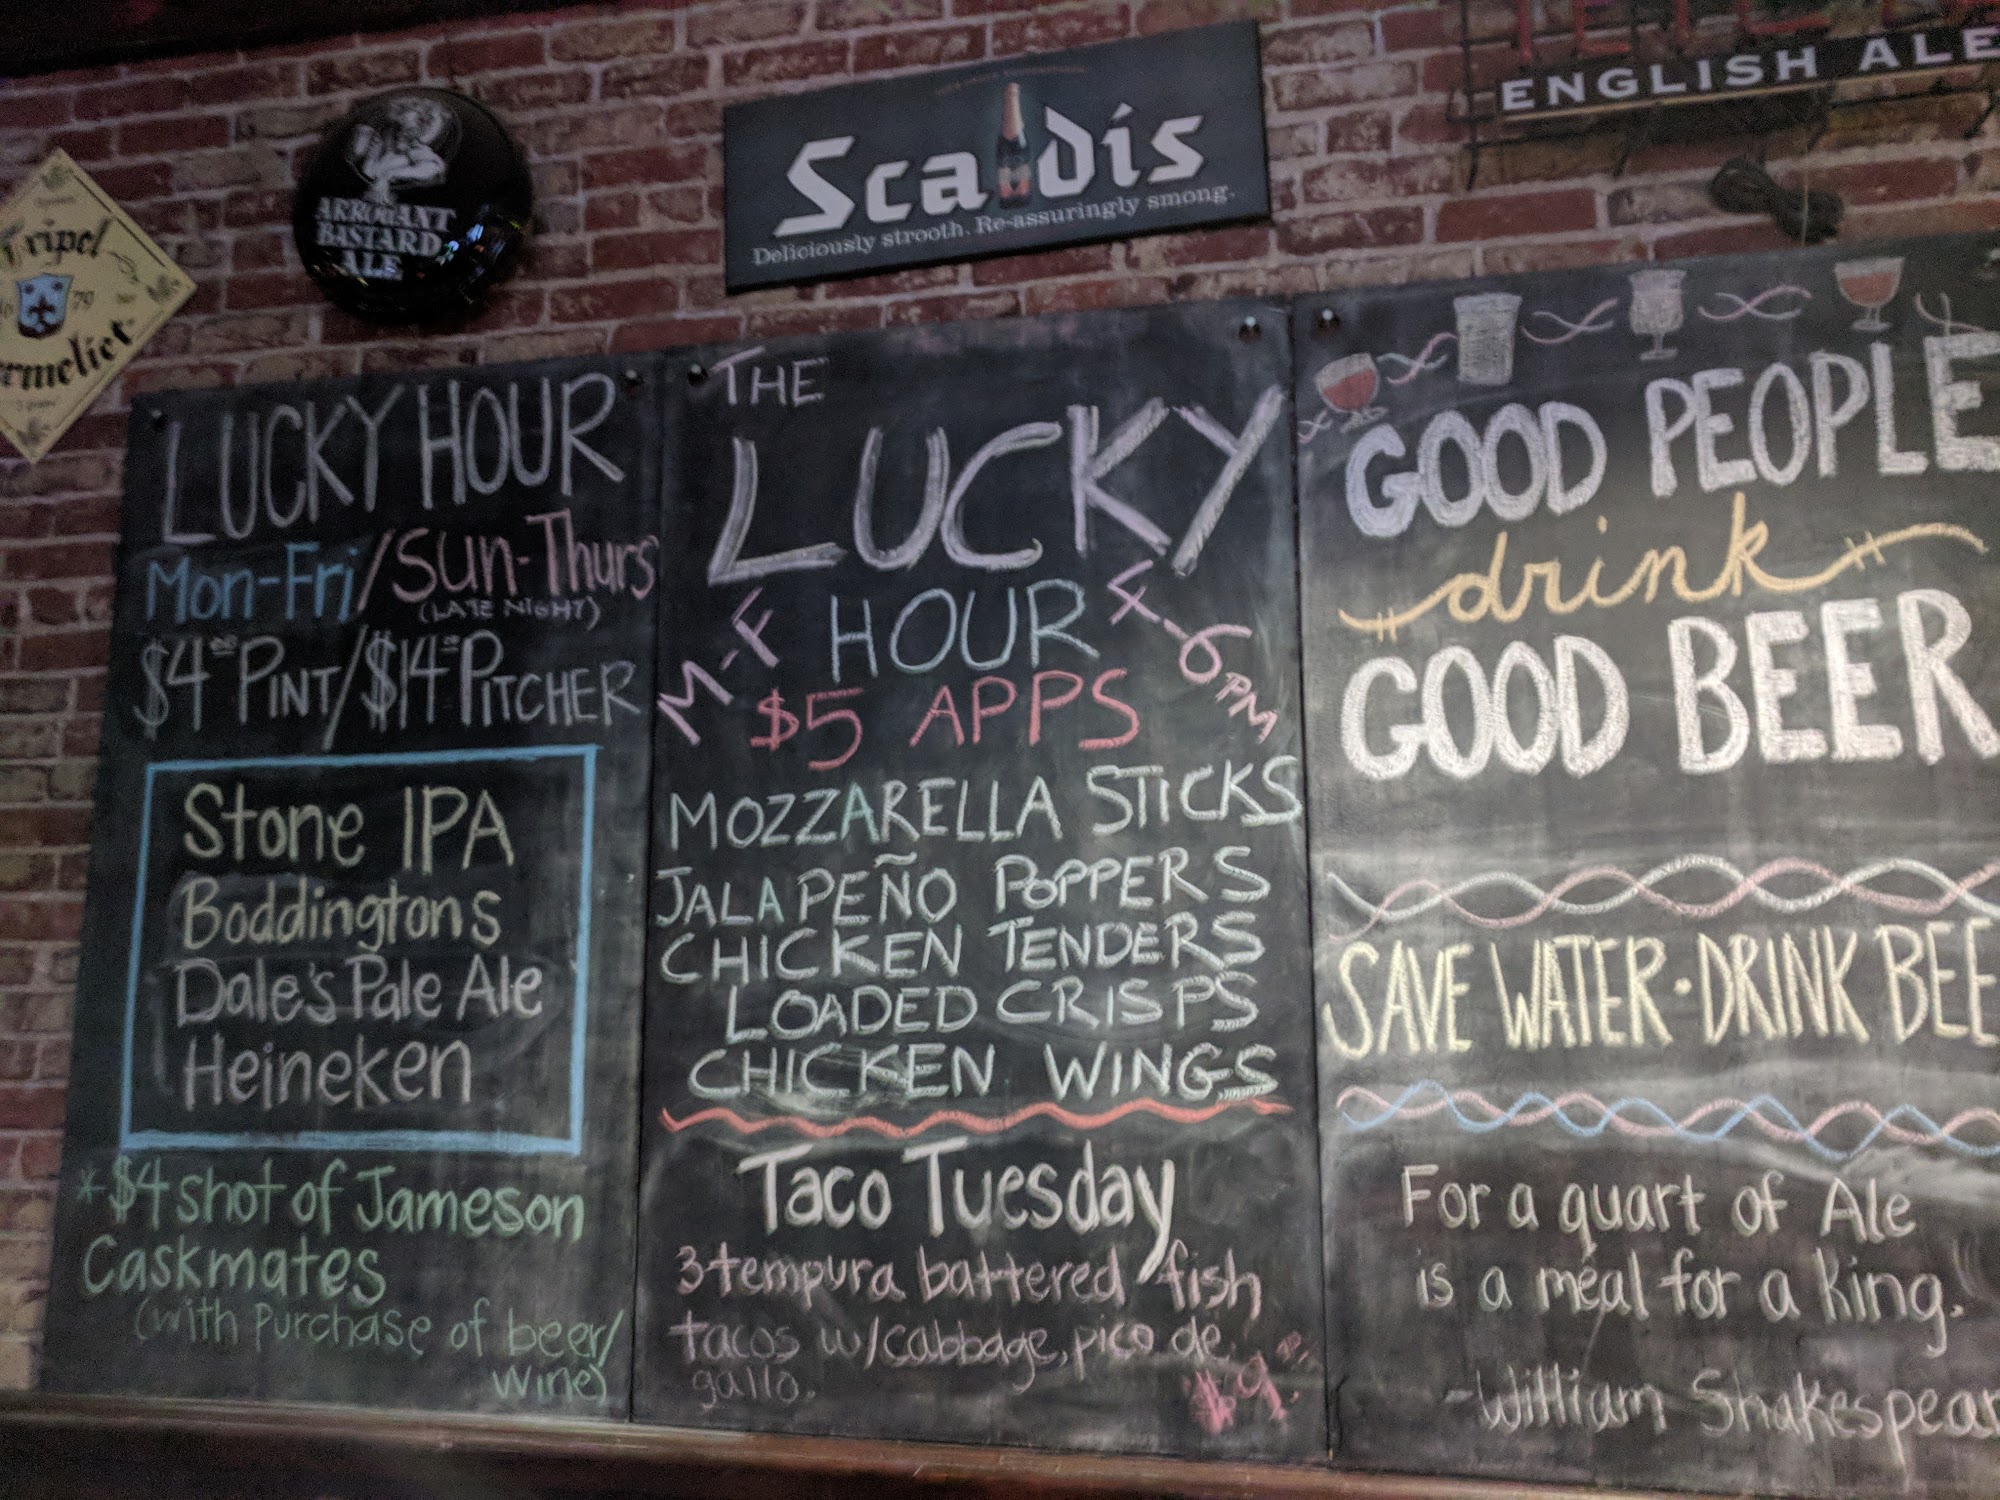 Tripel
16 79
ARROGANT
BASTARD
ALE
Scaldis
Deliciously strooth. Re-assuringly smong.
ENGLISH ALE
LUCKY HOUR
Mon-Fri/Sun-Thurs
(LATE NIGHT)
$4.00 PINT/$14.00 PITCHER
Stone IPA
Boddingtons
Dale's Pale Ale
Heineken
*$4 shot of Jameson
Caskmates
(with purchase of beer/
wine)
THE
LUCKY
HOUR
M-F 4-6PM
$5 APPS
MOZZARELLA STICKS
JALAPEÑO POPPERS
CHICKEN TENDERS
LOADED CRISPS
CHICKEN WINGS
Taco Tuesday
3 tempura battered fish
tacos w/cabbage, pico de
gallo.
GOOD PEOPLE
drink
GOOD BEER
SAVE WATER · DRINK BEE
For a quart of Ale
is a meal for a king.
-William Shakespear